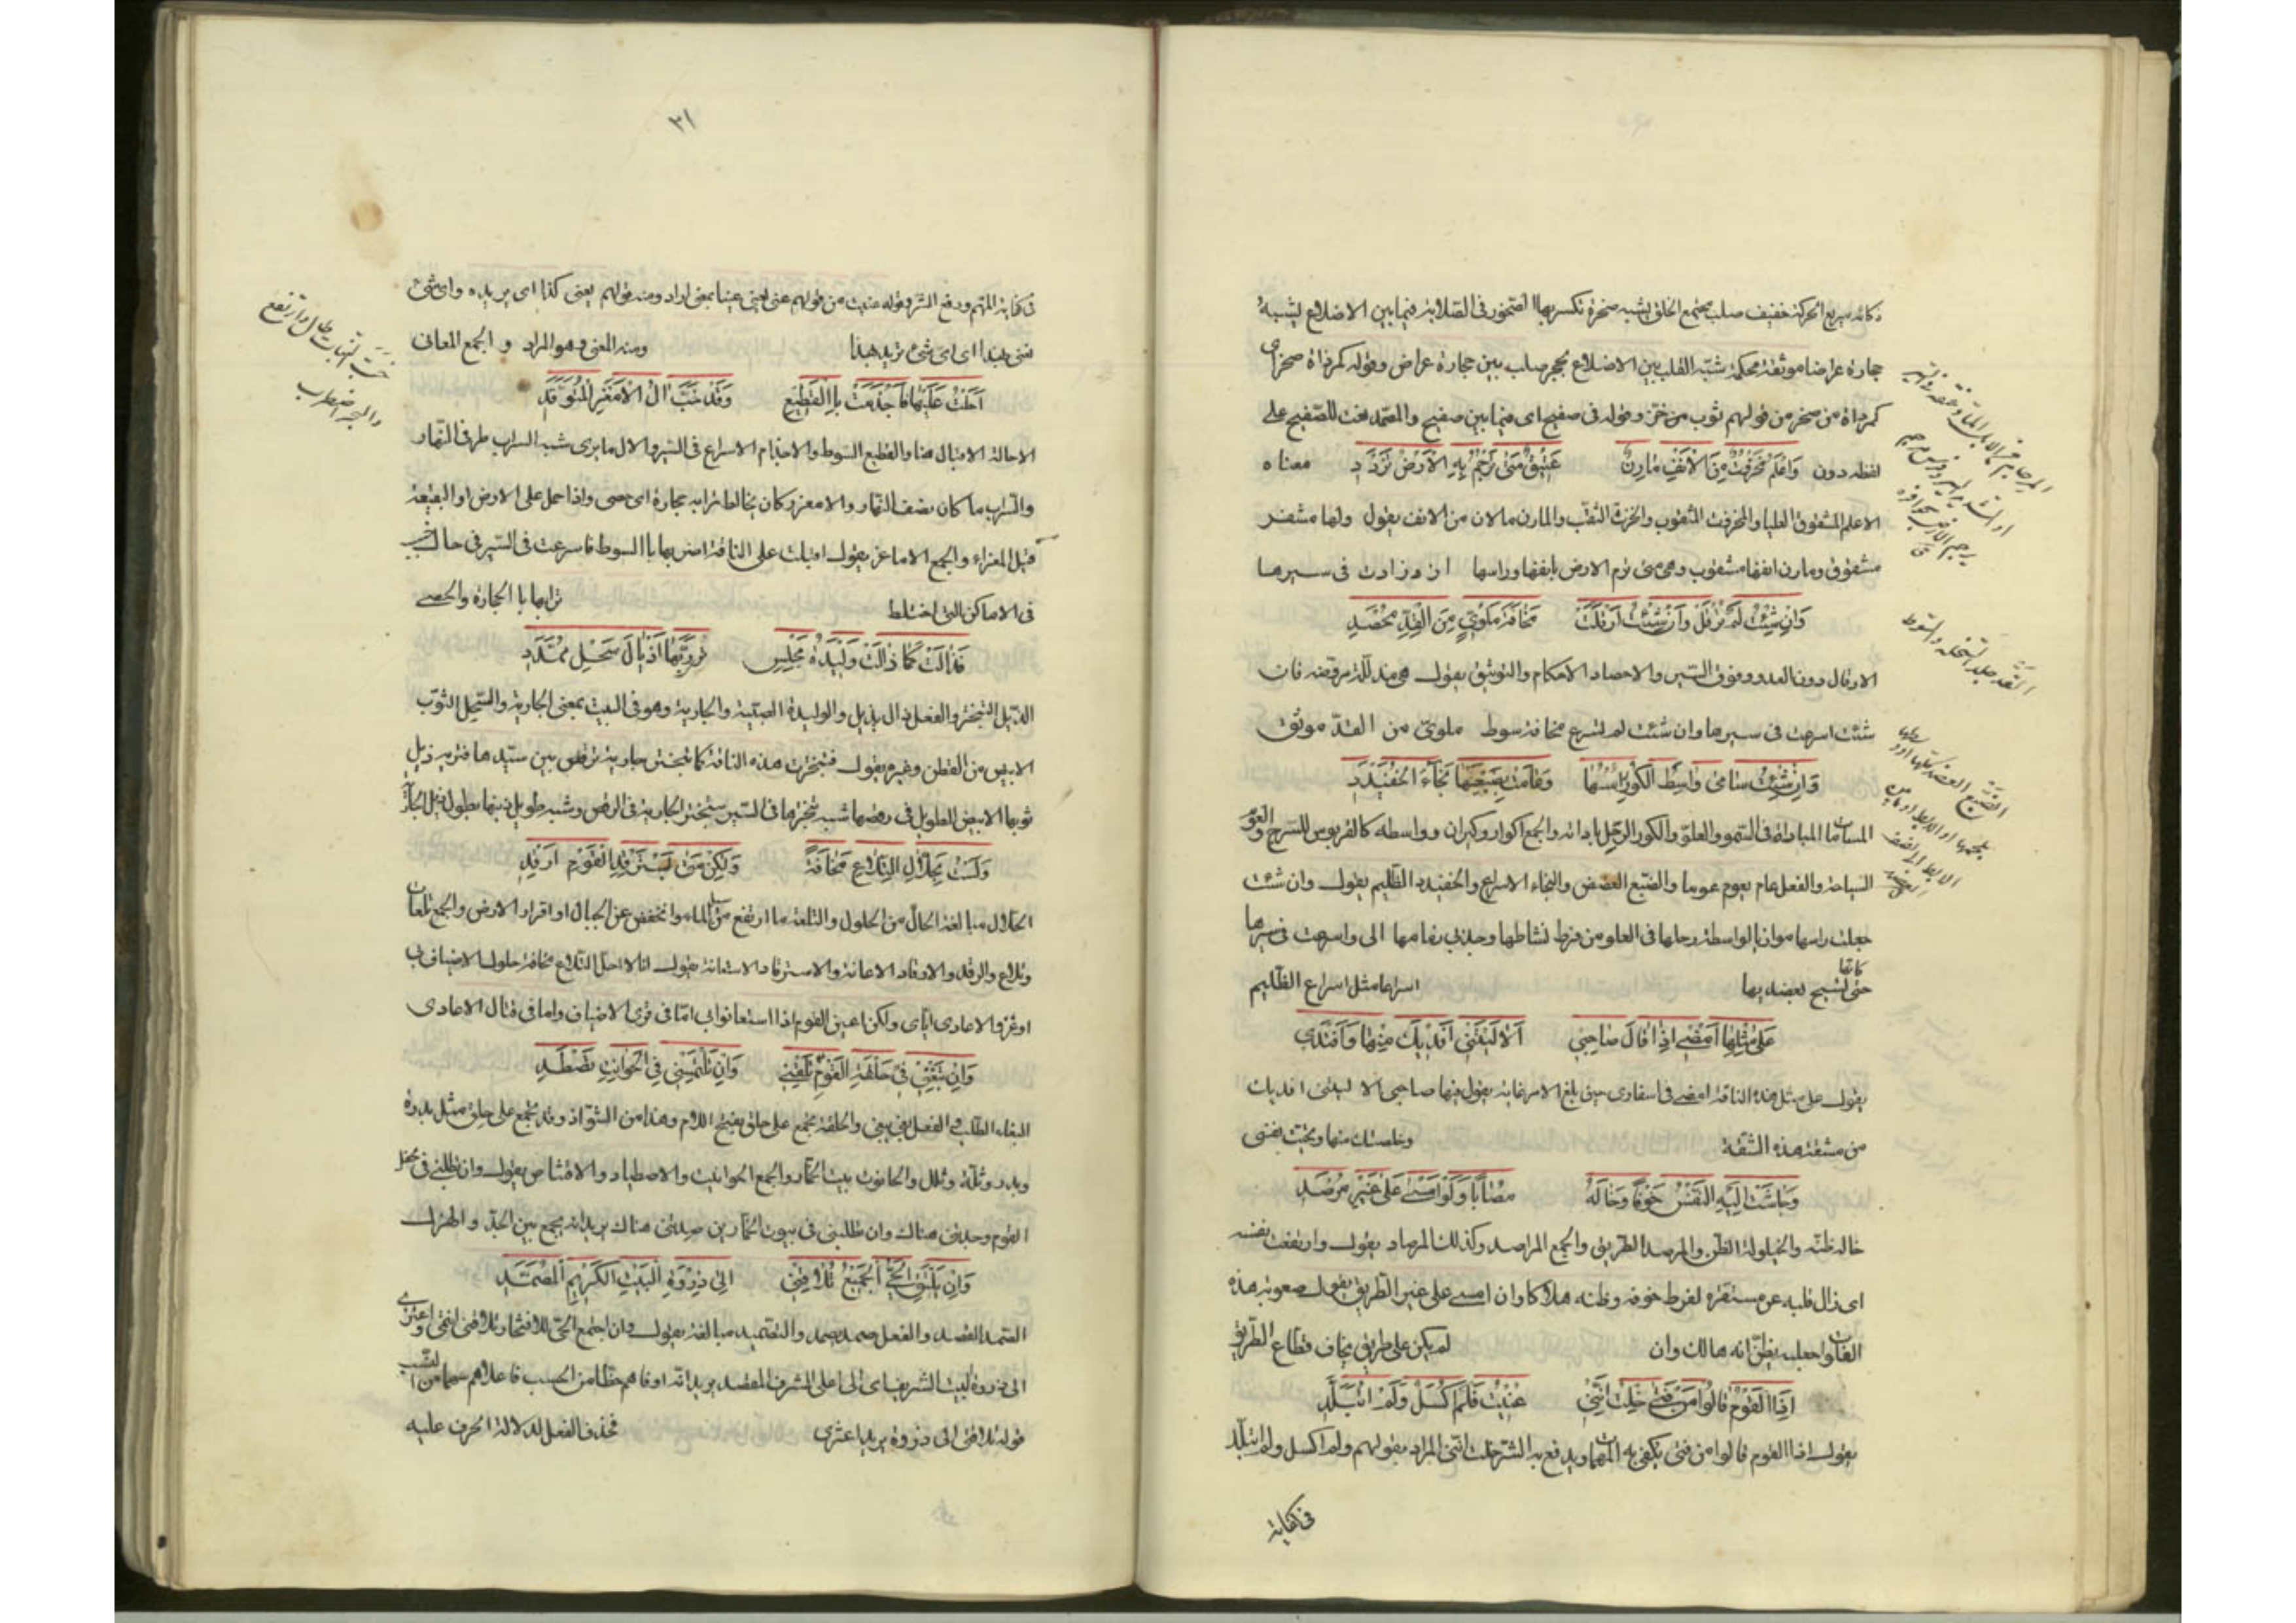 كانه سريع الحركة خفيف صلب مجتمع الخلق يشبه صخرة تكسر بها الصخور فى الصلابة فيما بين الاضلاع يشبه
حجارة عراضا موثقة محكمة شبّه القلب بين الاضلاع بحجر صلب بين حجارة عراض وقوله كمرداة صخر اى
كمرداة من صخر من قولهم ثوب من خز وقوله فى صفيح اى فيما بين صفيح والمصمد نعت للصفيح على
لفظه دون وَاَعْلَمُ مَخْرُوْتٌ مِنَ الْاَنْفِ مَارِنٌ عَتِيْقٌ مَتىٰ تَرْجُمْ بِهِ الْاَرْضَ تَزْدَدِ معناه
الاعلم المشقوق العليا والمخروت المثقوب والخرت الثقب والمارن ما لان من الانف يقول ولها مشفر
مشقوق ومارن انفها مثقوب وهى متى ترم الارض بانفها وراسها ازدادت فى سيرها
وَاِنْ شِئْتُ لَمْ تُرْقِلْ وَاِنْ شِئْتُ اَرْقَلَتْ مَخَافَةَ مَلْوِىٍّ مِنَ الْقِدِّ مُحْصَدِ
الارقال دون العدو وفوق السير والاحصاد الاحكام والتوثيق يقول هى مذللة مروضة فان
شئت اسرعت فى سيرها وان شئت لم تسرع مخافة سوط ملوى من القدّ موثق
وَاِنْ شِئْتُ سَامىٰ وَاسِطَ الْكُوْرِ رَأْسُهَا وَعَامَتْ بِضَبْعَيْهَا نَجَاءَ الْخَفَيْدَدِ
المسامات المباراة فى السمو والعلوّ والكور الرحل باداته والجمع اكوار وكيران وواسطه كالقربوس للسرج والعوم
السباحة والفعل عام يعوم عوما والضبع العضد والنجاء الاسراع والخفيدد الظليم يقول وان شئت
جعلت راسها موازيا لواسطة رحلها فى العلو من فرط نشاطها وجذبى زمامها الى واسرعت فى سيرها
حتى كانها تسبح بعضديها اسراعا مثل اسراع الظليم
عَلىٰ مِثْلِهَا اَمْضِىْ اِذَا قَالَ صَاحِبِىْ اَلَا لَيْتَنِىْ اَفْدِيْكَ مِنْهَا وَاَفْتَدِىْ
يقول على مثل هذه الناقة امضى فى اسفارى حين بلغ الامر غايته يقول فيها صاحبى الا ليتنى افديك
من مشقة هذه الشقة وخلصتك منها ونجيت نفسى
وَجَاشَتْ اِلَيْهِ النَّفْسُ خَوْفًا وَخَالَهُ مُصَابًا وَلَوْ اَمْسىٰ عَلىٰ غَيْرِ مَرْصَدِ
خاله ظنّه والخيلولة الظن والمرصد الطريق والجمع المراصد وكذلك المرصاد يقول وارتفعت نفسه
اى زال قلبه عن مستقره لفرط خوفه وظنه هلاكا وان امسى على غير الطريق يقول صعوبة هذه
الفلوات جعلته يظنّ انه هالك وان لم يكن على طريق يخاف قطاع الطريق
اِذَا الْقَوْمُ قَالُوْا مَنْ فَتىً خِلْتُ اَنَّنِىْ عُنِيْتُ فَلَمْ اَكْسَلْ وَلَمْ اَتَبَلَّدِ
يقول اذا القوم قالوا من فتى يكفى به المهمات ويدفع به الشر خلت اننى المراد بقولهم ولم اكسل ولم اتبلّد
فى كفاية
٣١
فى كفاية المهم ودفع الشر وقوله عنيت من قولهم عنى يعنى عينا بمعنى اراد ومنه قولهم يعنى كذا اى يريده واى شئ
تعنى بهذا اى اى شئ تريد بهذا ومنه المعنى وهو المراد و الجمع المعانى
اَحَلْتُ عَلَيْهَا بِالْقَطِيْعِ فَاَجْذَمَتْ وَقَدْ خَبَّ اٰلُ الْاَمْعَزِ الْمُتَوَقِّدِ
الاحالة الاقبال هنا والقطيع السوط والاجذام الاسراع فى السير والال ما يرى شبه السراب طرفى النهار
والسراب ما كان نصف النهار والامعز مكان يخالط ترابه حجارة اى حصى واذا حمل على الارض او البقيعة
قيل المعزاء والجمع الاماعز يقول اقبلت على الناقة اضربها بالسوط فاسرعت فى السير فى حال خبب
فى الاماكن التى اختلط ترابها با الحجارة والحصى
فَذَالَتْ كَمَا ذَالَتْ وَلِيْدَةُ مَجْلِسٍ تُرِىْ رَبَّهَا اَذْيَالَ سَحْلٍ مُمَدَّدِ
الذيل التبختر والفعل ذال يذيل والوليدة الصبية والجارية وهو فى البيت بمعنى الجارية والسحل الثوب
الابيض من القطن وغيره يقول فتبخترت هذه الناقة كما تتبختر جارية ترقص بين سيّدها فتريه ذيل
ثوبها الابيض الطويل فى رقصها شبه تبخترها فى السير بتبختر الجارية فى الرقص وشبه طويل ذنبها بطول ذيل الجارية
وَلَسْتُ بِحَلَّالِ التِّلَاعِ مَخَافَةً وَلٰكِنْ مَتىٰ يَسْتَرْفِدِ الْقَوْمُ اَرْفِدِ
الحلال مبالغة الحالّ من الحلول والتلعة ما ارتفع من مسيل الماء وانخفض عن الجبال او اقرار الارض والجمع تلعات
وتلاع والرفد والارفاد الاعانة والاسترفاد الاستعانة يقول انا لا احل التلاع مخافة حلول الاضياف بى
او غزو الاعادى اياى ولكن اعين القوم اذا استعانوا بى امّا فى قرى الاضياف واما فى قتال الاعادى
وَاِنْ تَبْغِنِىْ فِىْ حَلْقَةِ الْقَوْمِ تَلْقَنِىْ وَاِنْ تَلْتَمِسْنِىْ فِى الْحَوَانِيْتِ تَصْطَدِ
البغاء الطلب والفعل بغى يبغى والحلقة تجمع على حلق بفتح اللام وهذا من الشواذ وقد تجمع على حلق مثل بدرة
وبدر وثلّة وثلل والحانوت بيت الخمّار والجمع الحوانيت والاصطياد والاقتناص يقول وان تطلبنى فى محفل
القوم وجدتنى هناك وان تطلبنى فى بيوت الخمّارين صدتنى هناك يريد انه يجمع بين الجدّ والهزل
وَاِنْ يَلْتَقِ الْحَىُّ الْجَمِيْعُ تُلَاقِنِىْ اِلىٰ ذِرْوَةِ الْبَيْتِ الْكَرِيْمِ الْمُصَمَّدِ
الصمد القصد والفعل صمد يصمد والتصميد مبالغة يقول وان اجتمع الحىّ للافتخار تلاقنى انتمى واعتزى
الى ذروة البيت الشريف اى الى اعلى الشرف المقصد يريد انه اوفاهم حظا من الحسب فاعلاهم سهما من النسب
قوله تلاقنى الى ذروة يريد اعتزى فحذف الفعل لدلالة الحرف عليه
خبّ النبات طال وارتفع
والبحر اضطرب